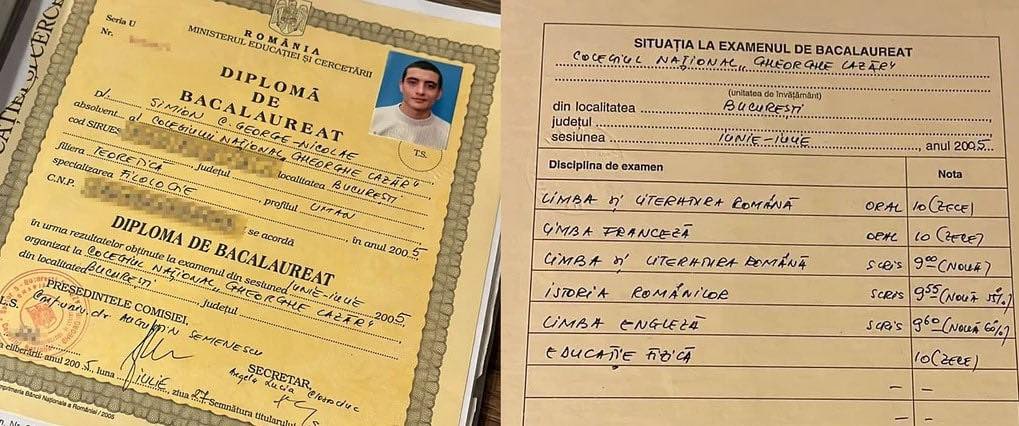 Seria U
Nr.
ROMÂNIA
MINISTERUL EDUCAȚIEI ȘI CERCETĂRII
DIPLOMĂ
DE
BACALAUREAT
D/ SIMION C. GEORGE-NICOLAE
absolvent al COLEGIULUI NAȚIONAL „GHEORGHE LAZĂR"
cod SIRUES localitatea BUCUREȘTI
județul
filiera TEORETICĂ, profilul UMAN
specializarea FILOLOGIE
C.N.P. se acordă în anul 2005
T.S.
DIPLOMA DE BACALAUREAT
în urma rezultatelor obținute la examenul din sesiunea IUNIE-IULIE 2005
organizat la COLEGIUL NAȚIONAL „GHEORGHE LAZĂR"
din localitatea BUCUREȘTI, județul
PREȘEDINTELE COMISIEI,
L.S. AUGUSTIN SEMENESCU
SECRETAR,
Angela Lucia
eliberării anul 2005, luna IULIE, ziua Semnătura titularului
Imprimeria Băncii Naționale a României / 2005
SITUAȚIA LA EXAMENUL DE BACALAUREAT
COLEGIUL NAȚIONAL „GHEORGHE LAZĂR"
(unitatea de învățământ)
din localitatea BUCUREȘTI
județul
sesiunea IUNIE-IULIE, anul 2005
Disciplina de examen Nota
LIMBA ȘI LITERATURA ROMÂNĂ ORAL 10 (ZECE)
LIMBA FRANCEZĂ ORAL 10 (ZECE)
LIMBA ȘI LITERATURA ROMÂNĂ SCRIS 9 00 (NOUĂ)
ISTORIA ROMÂNILOR SCRIS 9 55 (NOUĂ 55%)
LIMBA ENGLEZĂ SCRIS 9 60 (NOUĂ 60%)
EDUCAȚIE FIZICĂ 10 (ZECE)
– –
– –